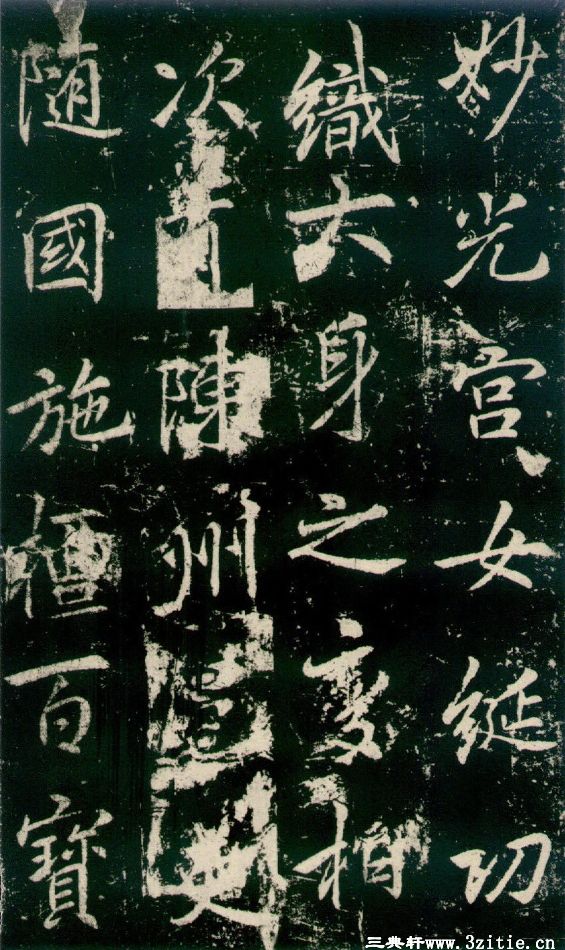 妙光宮女綖功
織大身之變相
次陳州
隨國施檀百寶
三典軒www.3zitie.cn